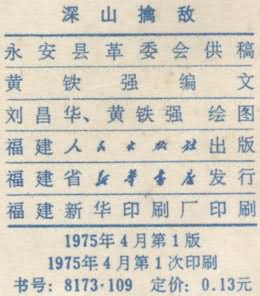 深山擒敌
永安县革委会供稿
黄铁强编文
刘昌华、黄铁强绘图
福建人民出版社出版
福建省新华书店发行
福建新华印刷厂印刷
1975年4月第1版
1975年4月第1次印刷
书号：8173·109 定价：0.13元